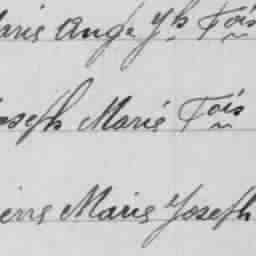 Marie Ange Jh Fois
Joseph Marie Fois
Pierre Marie Joseph